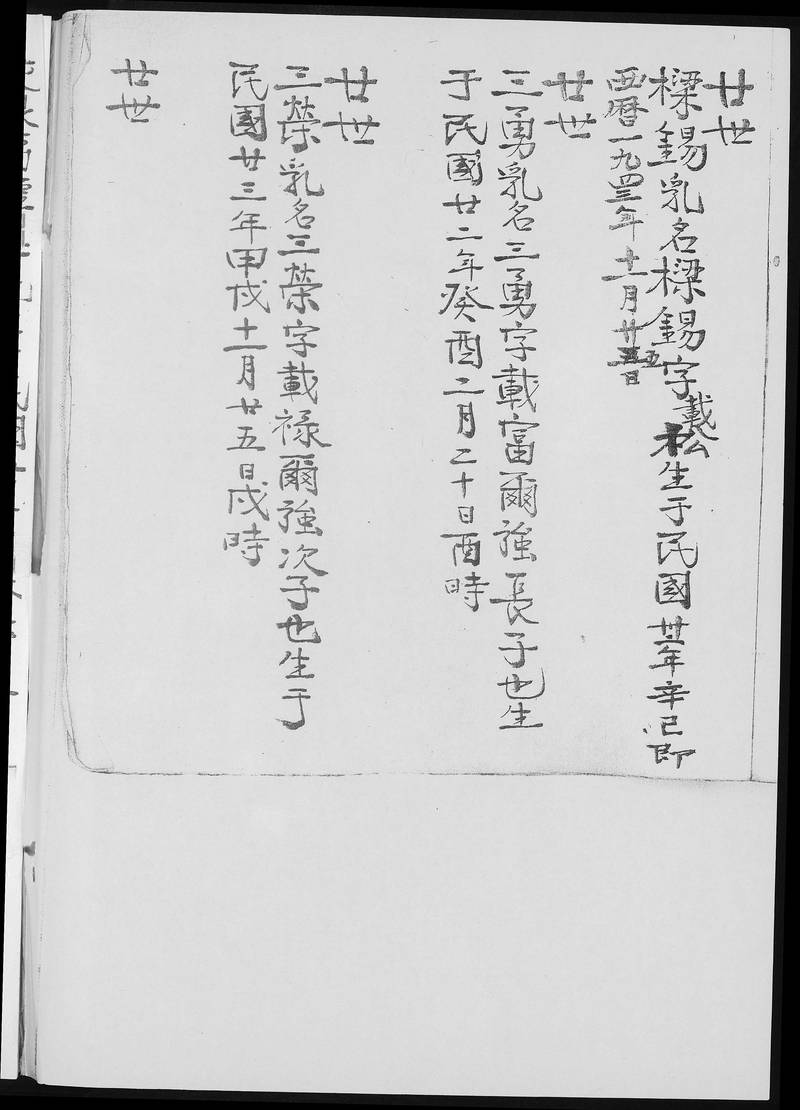 廿世
樑錫乳名樑錫字載松生于民國卅年辛巳即
西曆一九四三年十一月廿五日
廿世
三勇乳名三勇字載富爾強長子也生
于民國廿二年癸酉二月二十日酉時
廿世
三榮乳名三榮字載祿爾強次子也生于
民國廿三年甲戌十一月廿五日戌時
廿世